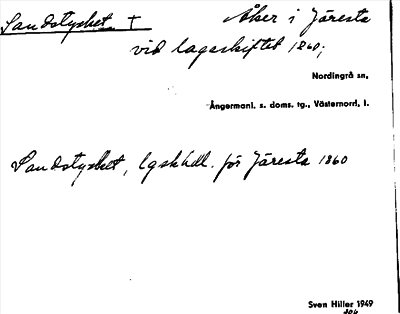 Sandstycket † Åker i Järesta
vid lagaskiftet 1860;
Nordingrå sn,
Ångermanl. s. doms. tg., Västernorrl. l.
Sandstycket, lgskhdl. för Järesta 1860
Sven Hiller 1949